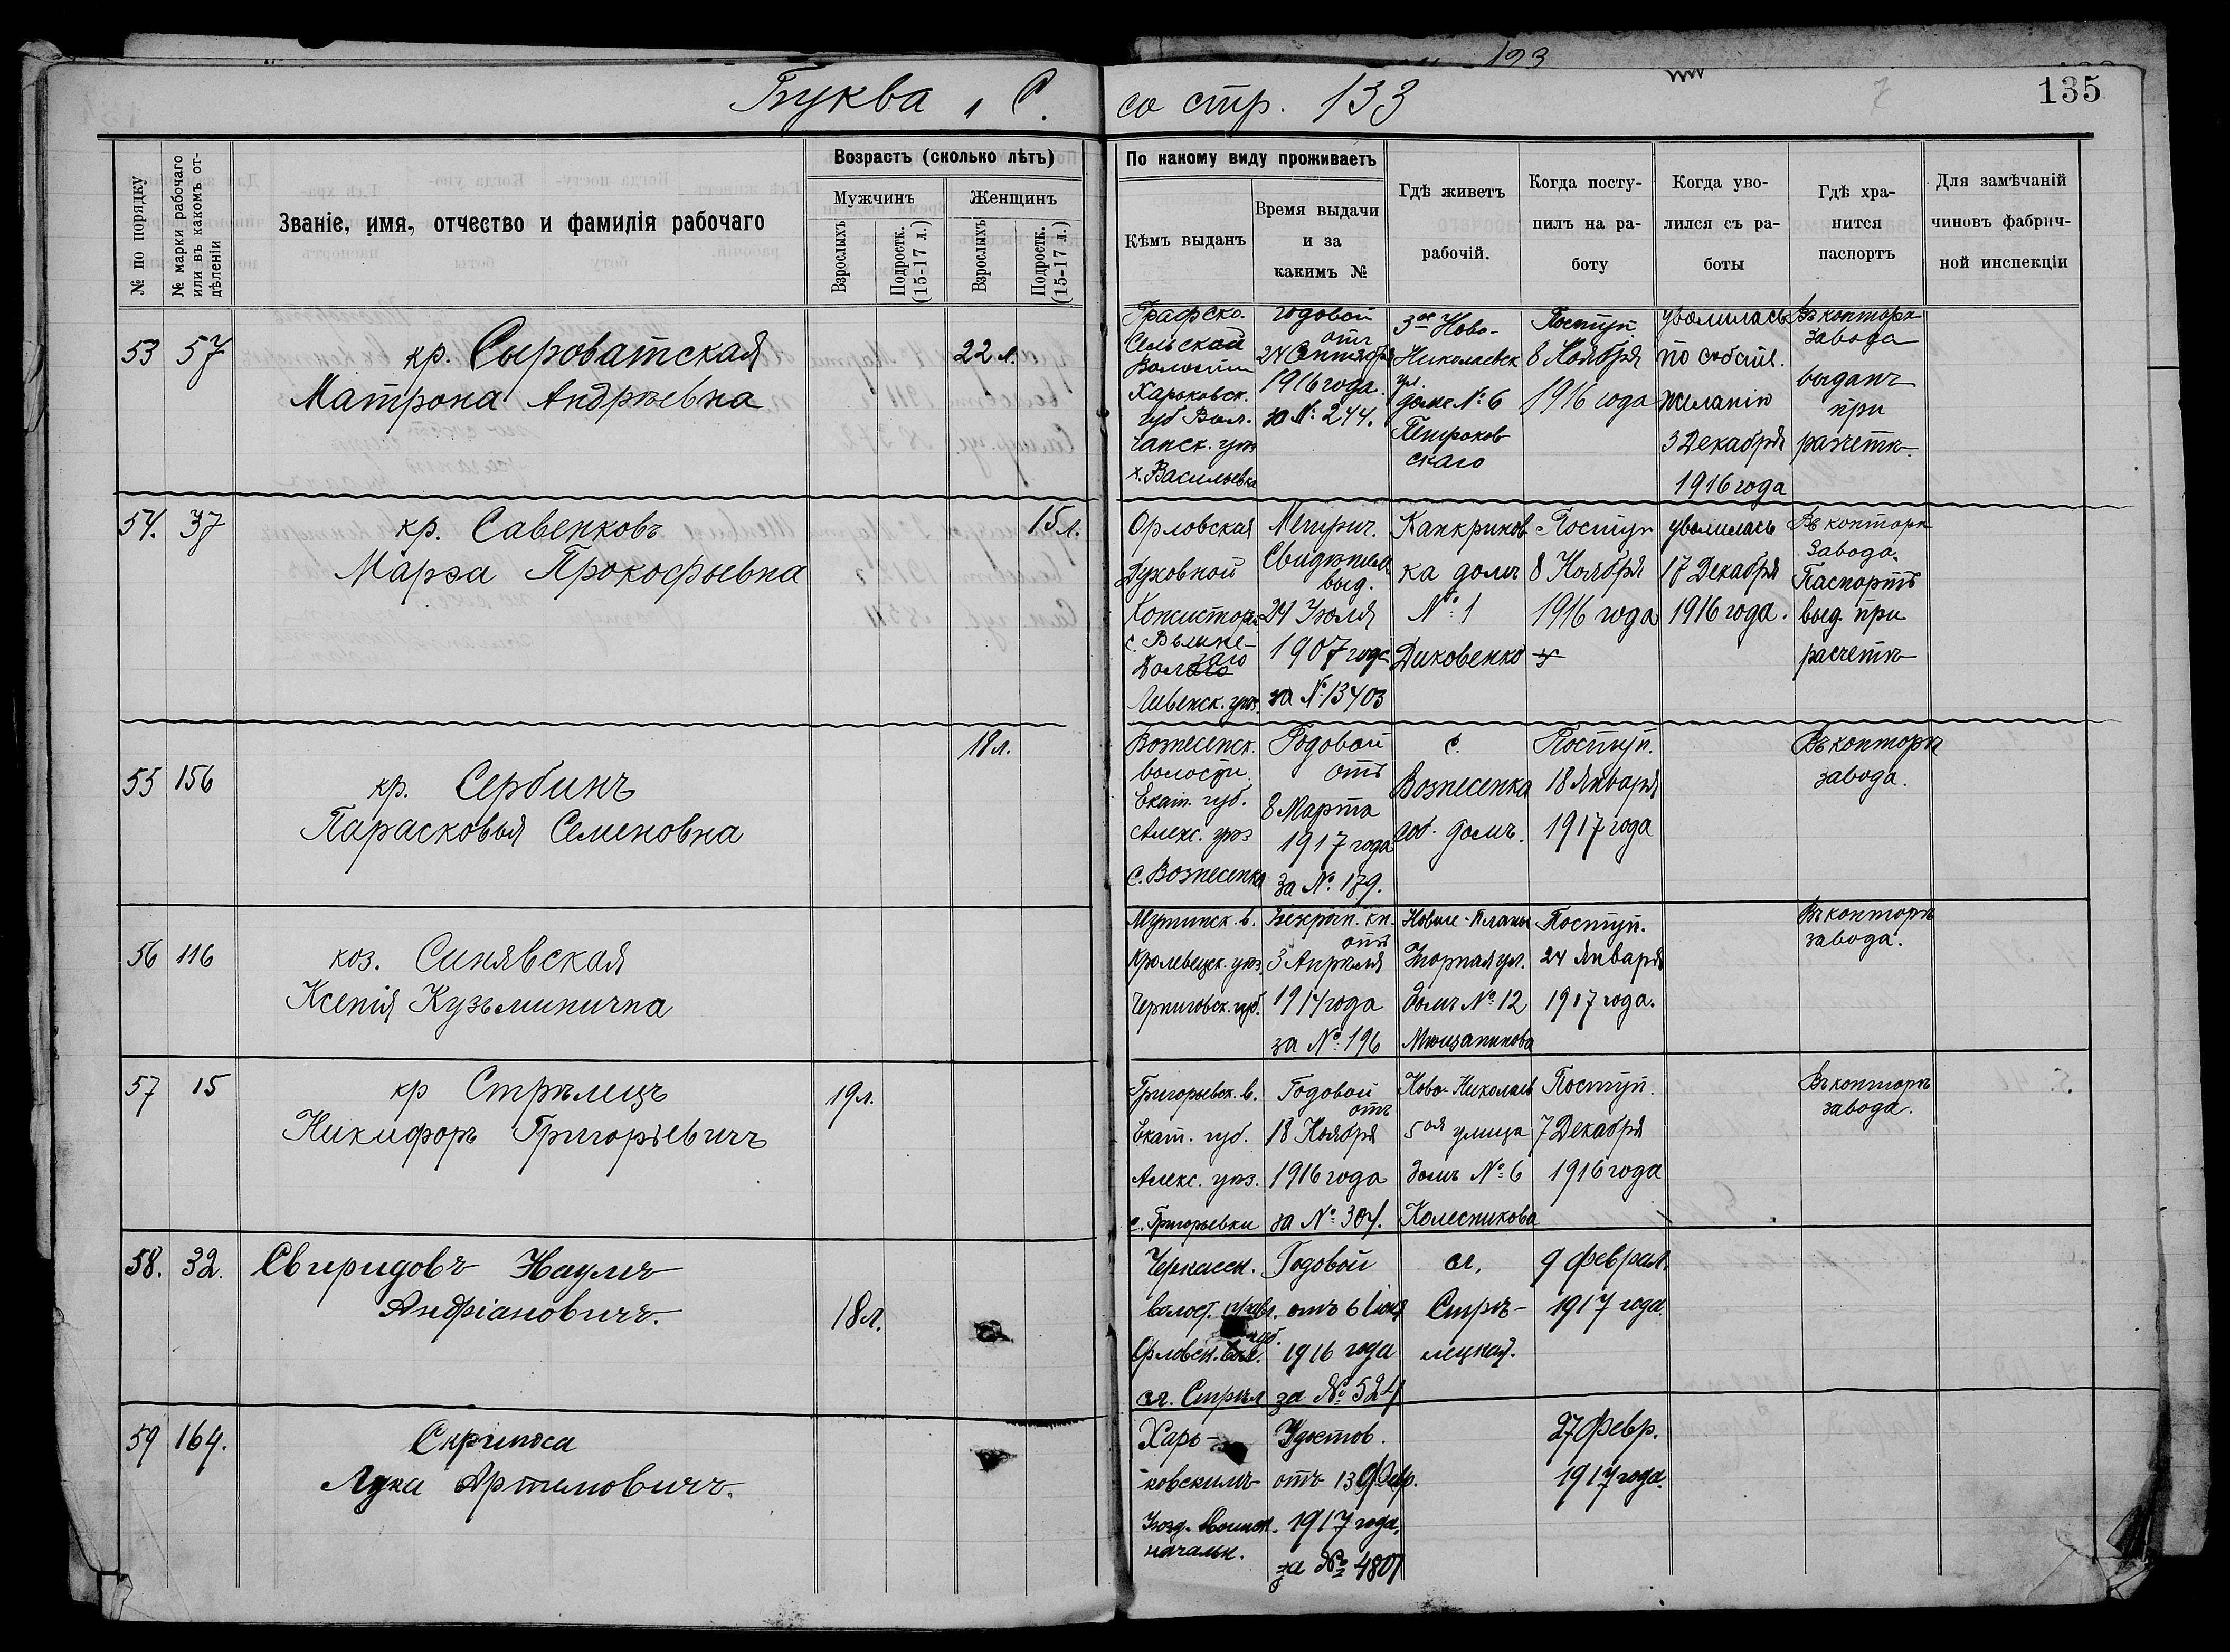 193
Буква „С.
со стр. 133
7
135
№ по порядку
№ марки рабочаго или въ какомъ от-
дѣленіи
Званіе, имя, отчество и фамилія рабочаго
Возрастъ (сколько лѣтъ)
Мужчинъ
Женщинъ
Взрослыхъ
Подростк.
(15-17 л.)
Взрослыхъ
Подростк.
(15-17 л.)
По какому виду проживаетъ
Кѣмъ выданъ
Время выдачи
и за
какимъ №
Гдѣ живетъ
рабочій.
Когда посту-
пилъ на ра-
боту
Когда уво-
лился съ ра-
боты
Гдѣ хра-
нится
паспортъ
Для замѣчаній
чиновъ фабрич-
ной инспекціи
53
57
кр. Сыроватская
Матрона Андрѣевна
22 л.
Графско-
Сельской
Волости
Харьковск.
губ Вол.
чанск. уѣз
х. Васильевка
годовой
отъ
24 Сентября
1916 года.
за №: 244.
3ое Ново-
Николаевск
ул.
домъ №: 6
Петроков
скаго
Поступ
8 Ноября
1916 года
уволилась
по собств.
желанію
3 Декабря
1916 года
Въ конторѣ
завода
выданъ
при
разчетѣ.
54.
37
кр. Савенковъ
Марѳа Прокофьевна
15 л.
Орловская
Духовной
Консистор
с.
Ливенск. уѣз.
Метрич.
Свидѣтел.
выд.
24 Іюля
1907 года
за №: 13403
Канкринов
ка домъ
№: 1
Диковенко
Поступ
8 Ноября
1916 года
уволилась
17 Декабря
1916 года.
Въ конторѣ
завода.
Паспортъ
выд. при
расчетѣ
55
156
кр. Сербинъ
Парасковья Семеновна
18 л.
Вознесенск.
волости.
Екат. губ.
Алекс. уѣз
с. Вознесенка
Годовой
отъ
8 Марта
1917 года
за №: 179.
с.
Вознесенка
соб. домъ.
Поступ.
18 Января
1917 года
Въ конторѣ
завода.
56
116
коз. Синявская
Ксенія Кузьминична
Мутинск. в.
Кролевецк. уѣз.
Черниговск. губ.
Безсроч. кн.
отъ
3 Апрѣля
1914 года
за №: 196
Новые-Планы
Домъ №: 12
Поступ.
24 Января
1917 года.
Въ конторѣ
завода.
57
15
кр Стрѣлецъ
Никифоръ Григорьевичъ
19 л.
Григорьевск. в.
Екат. губ.
Алекс. уѣз.
с. Григорьевки
Годовой
отъ
18 Ноября
1916 года
за №: 304.
Ново-Николаев
5ая улица
Домъ №: 6
Колесникова
Поступ.
7 Декабря
1916 года
Въ конторѣ
завода.
58.
32.
Свиридовъ Наумъ
Андріановичъ.
18 л.
Черкасск.
волост. правл.
губ.
Орловск.
сл. Стрѣл
Годовой
отъ 6 Іюня
1916 года
за № 524
сл.
Стрѣ-
лецкая.
9 феврал.
1917 года.
59
164.
Скрипка
Лука Артемовичъ.
Харь-
ковскимъ
Уѣзд. Воинск.
начальн.
Удостов.
отъ 13 Февр.
1917 года.
за № 4807
27 Февр.
1917 года.